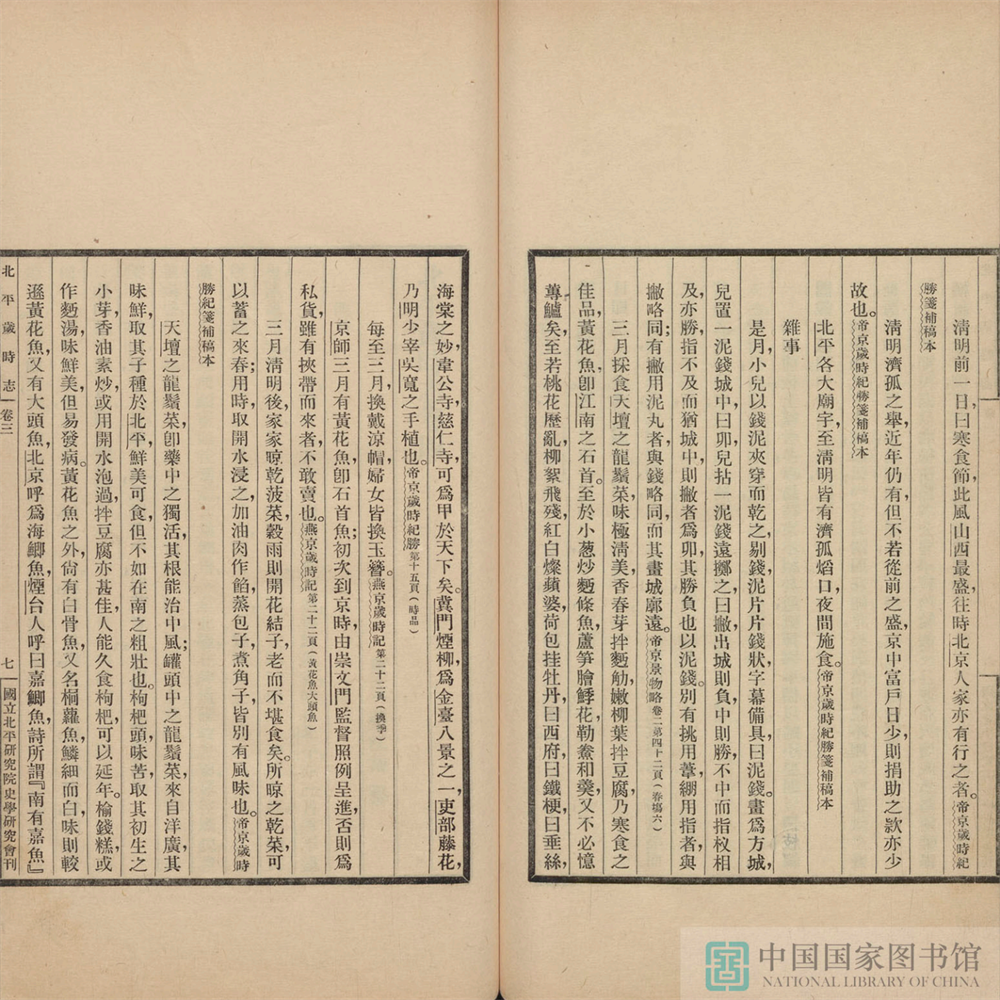 清明前一日，曰寒食節，此風山西最盛，往時北京人家亦有行之者。帝京歲時紀
勝箋補稿本
清明濟孤之舉，近年仍有，但不若從前之盛，京中富戶日少，則捐助之款亦少
故也。帝京歲時紀勝箋補稿本
北平各大廟宇，至清明皆有濟孤焰口，夜間施食。帝京歲時紀勝箋補稿本
雜事
是月小兒以錢泥夾穿而乾之，剔錢泥片片錢狀，字幕備具，曰泥錢。畫爲方城，
兒置一泥錢城中，曰卯，兒拈一泥錢遠擲之，曰撇，出城則負，中則勝，不中而指杈相
及，亦勝，指不及而猶城中，則撇者爲卯，其勝負也以泥錢。別有挑用葦，繃用指者，與
撇略同；有撇用泥丸者，與錢略同，而其畫城廓遠。帝京景物略卷二第四十二頁（春塲六）
三月採食天壇之龍鬚菜，味極淸美，香春芽拌麪觔，嫩柳葉拌豆腐，乃寒食之
佳品，黃花魚卽江南之石首。至於小葱炒麪條魚，蘆笋膾鯚花，勒鯗和羹，又不必憶
蓴鱸矣。至若桃花歷亂，柳絮飛殘，紅白燦蘋婆，荷包挂牡丹，曰西府，曰鐵梗，曰垂絲，
海棠之妙，韋公寺，慈仁寺，可爲甲於天下矣。冀門煙柳，爲金臺八景之一，吏部藤花，
乃明少宰吳寬之手植也。帝京歲時紀勝第十五頁（時品）
每至三月，換戴涼帽，婦女皆換玉簪。燕京歲時記第二十二頁（換季）
京師三月有黃花魚，卽石首魚；初次到京時，由崇文門監督照例呈進，否則爲
私貨，雖有挾帶而來者，不敢賣也。燕京歲時記第二十二頁（黃花魚大頭魚）
三月淸明後，家家晾乾菠菜，穀雨則開花結子，老而不堪食矣。所晾之乾菜，可
以蓄之來春；用時取開水浸之，加油肉作餡，蒸包子，煮角子，皆別有風味也。帝京歲時
勝紀箋補稿本
天壇之龍鬚菜，卽藥中之獨活，其根能治中風；罐頭中之龍鬚菜，來自洋廣，其
味鮮，取其子種於北平，鮮美可食，但不如在南之粗壯也。枸杞頭味苦，取其初生之
小芽，香油素炒，或用開水泡過，拌豆腐亦甚佳，人能久食枸杞，可以延年。榆錢糕或
作麪湯，味鮮美，但易發病。黃花魚之外，尙有白骨魚，又名桐蘿魚，鱗細而白，味則較
遜黃花魚，又有大頭魚，北京呼爲海鯽魚，煙台人呼曰嘉鯽魚，詩所謂『南有嘉魚』
北平歲時志 卷三 七 國立北平研究院史學研究會刊
中国国家图书馆
NATIONAL LIBRARY OF CHINA